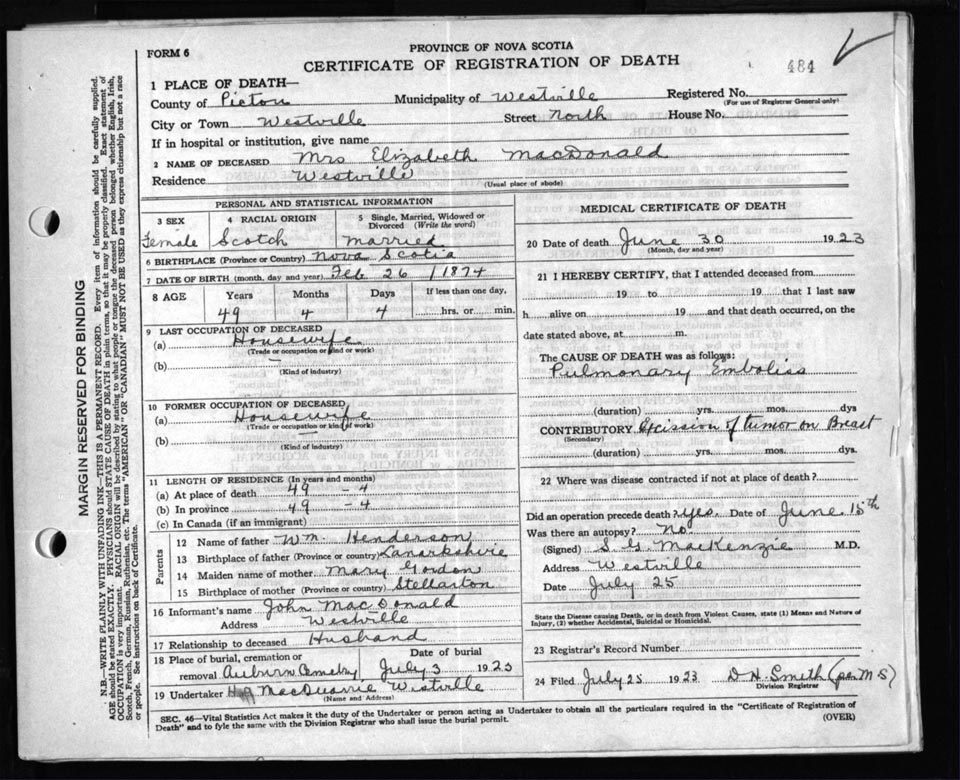 FORM 6
PROVINCE OF NOVA SCOTIA
CERTIFICATE OF REGISTRATION OF DEATH
484
1 PLACE OF DEATH—
County of Pictou Municipality of Westville Registered No.
(For use of Registrar General only)
City or Town Westville Street North House No.
If in hospital or institution, give name
2 NAME OF DECEASED Mrs Elizabeth MacDonald
Residence Westville
(Usual place of abode)
PERSONAL AND STATISTICAL INFORMATION
3 SEX 4 RACIAL ORIGIN 5 Single, Married, Widowed or Divorced (Write the word)
Female Scotch Married
6 BIRTHPLACE (Province or Country) Nova Scotia
7 DATE OF BIRTH (month, day and year) Feb 26 1874
8 AGE Years Months Days If less than one day,
49 4 4 hrs. or min.
9 LAST OCCUPATION OF DECEASED
(a) Housewife
(Trade or occupation or kind or work)
(b) —
(Kind of industry)
10 FORMER OCCUPATION OF DECEASED
(a) Housewife
(Trade or occupation or kind of work)
(b) —
(Kind of industry)
11 LENGTH OF RESIDENCE (In years and months)
(a) At place of death 49 – 4
(b) In province 49 – 4
(c) In Canada (if an immigrant)
Parents
12 Name of father Wm. Henderson
13 Birthplace of father (Province or country) Lanarkshire
14 Maiden name of mother Mary Gordon
15 Birthplace of mother (Province or country) Stellarton
16 Informant's name John MacDonald
Address Westville
17 Relationship to deceased Husband
18 Place of burial, cremation or removal Auburn Cemetry Date of burial July 3 1923
19 Undertaker MacQuarrie Westville
(Name and Address)
MEDICAL CERTIFICATE OF DEATH
20 Date of death June 30 1923
(Month, day and year)
21 I HEREBY CERTIFY, that I attended deceased from
19 to 19 that I last saw
h alive on 19 and that death occurred, on the
date stated above, at m.
The CAUSE OF DEATH was as follows:
Pulmonary Emboliss
(duration) yrs. mos. dys
CONTRIBUTORY Excission of tumor on Breast
(Secondary)
(duration) yrs. mos. dys.
22 Where was disease contracted if not at place of death?
Did an operation precede death? yes. Date of June 15th
Was there an autopsy? No
(Signed) S. G. MacKenzie M.D.
Address Westville
Date July 25
State the Disease causing Death, or in death from Violent Causes, state (1) Means and Nature of
Injury, (2) whether Accidental, Suicidal or Homicidal.
23 Registrar's Record Number
24 Filed July 25 1923 D. H. Smith (per M.S)
Division Registrar
SEC. 46—Vital Statistics Act makes it the duty of the Undertaker or person acting as Undertaker to obtain all the particulars required in the "Certificate of Registration of
Death" and to fyle the same with the Division Registrar who shall issue the burial permit.
(OVER)
MARGIN RESERVED FOR BINDING
N.B.—WRITE PLAINLY WITH UNFADING INK—THIS IS A PERMANENT RECORD. Every item of information should be carefully supplied.
AGE should be stated EXACTLY. PHYSICIANS should STATE CAUSE OF DEATH in plain terms, so that it may be properly classified. Exact statement of
OCCUPATION is very important. RACIAL ORIGIN will be described by stating to what people or tongue the deceased person belonged whether English, Irish,
Scotch, French, German, Russian, Ruthenian, etc. The terms "AMERICAN" OR "CANADIAN" MUST NOT BE USED as they express citizenship but not a race
or people. See instructions on back of Certificate.